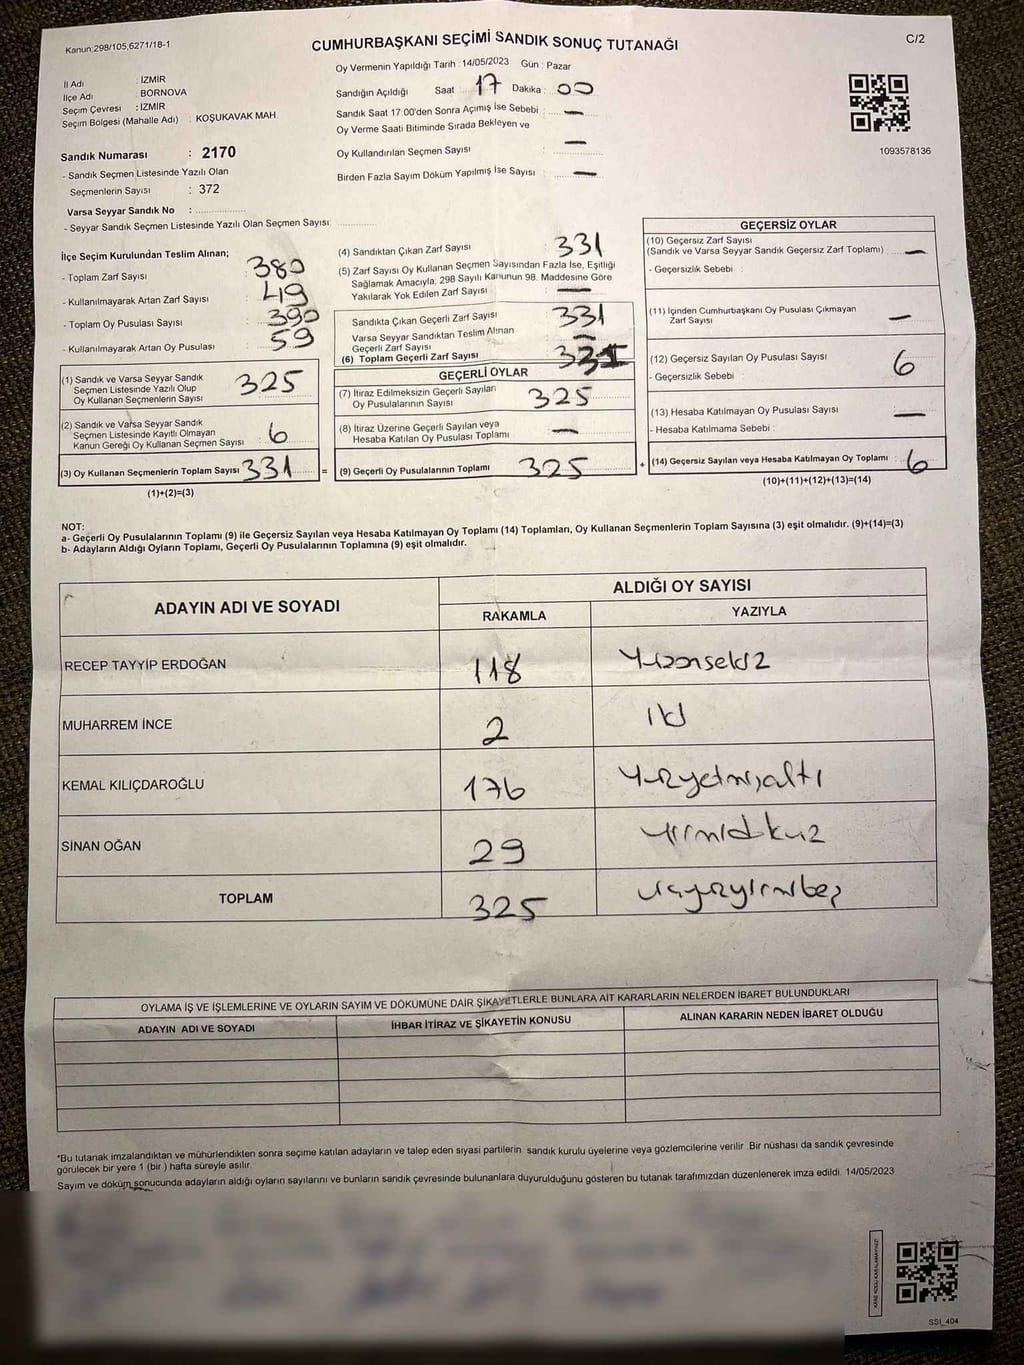 Kanun:298/105,6271/18-1
CUMHURBAŞKANI SEÇİMİ SANDIK SONUÇ TUTANAĞI
C/2
İl Adı : İZMİR
İlçe Adı : BORNOVA
Seçim Çevresi : İZMİR
Seçim Bölgesi (Mahalle Adı) : KOŞUKAVAK MAH.
Sandık Numarası : 2170
- Sandık Seçmen Listesinde Yazılı Olan
Seçmenlerin Sayısı : 372
Varsa Seyyar Sandık No :
- Seyyar Sandık Seçmen Listesinde Yazılı Olan Seçmen Sayısı:
Oy Vermenin Yapıldığı Tarih : 14/05/2023 Gün : Pazar
Sandığın Açıldığı Saat 17 Dakika : 00
Sandık Saat 17:00'den Sonra Açımış İse Sebebi : —
Oy Verme Saati Bitiminde Sırada Bekleyen ve
Oy Kullandırılan Seçmen Sayısı : —
Birden Fazla Sayım Döküm Yapılmış İse Sayısı : —
1093578136
İlçe Seçim Kurulundan Teslim Alınan;
- Toplam Zarf Sayısı : 380
- Kullanılmayarak Artan Zarf Sayısı : 49
- Toplam Oy Pusulası Sayısı : 390
- Kullanılmayarak Artan Oy Pusulası : 59
(1) Sandık ve Varsa Seyyar Sandık
Seçmen Listesinde Yazılı Olup
Oy Kullanan Seçmenlerin Sayısı : 325
(2) Sandık ve Varsa Seyyar Sandık
Seçmen Listesinde Kayıtlı Olmayan
Kanun Gereği Oy Kullanan Seçmen Sayısı : 6
(3) Oy Kullanan Seçmenlerin Toplam Sayısı : 331
(1)+(2)=(3)
(4) Sandıktan Çıkan Zarf Sayısı : 331
(5) Zarf Sayısı Oy Kullanan Seçmen Sayısından Fazla İse, Eşitliği
Sağlamak Amacıyla; 298 Sayılı Kanunun 98. Maddesine Göre
Yakılarak Yok Edilen Zarf Sayısı : —
Sandıkta Çıkan Geçerli Zarf Sayısı : 331
Varsa Seyyar Sandıktan Teslim Alınan
Geçerli Zarf Sayısı : —
(6) Toplam Geçerli Zarf Sayısı : 331
GEÇERLİ OYLAR
(7) İtiraz Edilmeksizin Geçerli Sayılan
Oy Pusulalarının Sayısı : 325
(8) İtiraz Üzerine Geçerli Sayılan veya
Hesaba Katılan Oy Pusulası Toplamı : —
= (9) Geçerli Oy Pusulalarının Toplamı : 325
GEÇERSİZ OYLAR
(10) Geçersiz Zarf Sayısı
(Sandık ve Varsa Seyyar Sandık Geçersiz Zarf Toplamı) : —
- Geçersizlik Sebebi :
(11) İçinden Cumhurbaşkanı Oy Pusulası Çıkmayan
Zarf Sayısı : —
(12) Geçersiz Sayılan Oy Pusulası Sayısı : 6
- Geçersizlik Sebebi :
(13) Hesaba Katılmayan Oy Pusulası Sayısı : —
- Hesaba Katılmama Sebebi :
+ (14) Geçersiz Sayılan veya Hesaba Katılmayan Oy Toplamı : 6
(10)+(11)+(12)+(13)=(14)
NOT:
a- Geçerli Oy Pusulalarının Toplamı (9) ile Geçersiz Sayılan veya Hesaba Katılmayan Oy Toplamı (14) Toplamları, Oy Kullanan Seçmenlerin Toplam Sayısına (3) eşit olmalıdır. (9)+(14)=(3)
b- Adayların Aldığı Oyların Toplamı, Geçerli Oy Pusulalarının Toplamına (9) eşit olmalıdır.
ADAYIN ADI VE SOYADI ALDIĞI OY SAYISI
RAKAMLA YAZIYLA
RECEP TAYYİP ERDOĞAN 118 Yüzonsekiz
MUHARREM İNCE 2 iki
KEMAL KILIÇDAROĞLU 176 Yüzyetmişaltı
SİNAN OĞAN 29 Yirmidokuz
TOPLAM 325 Üçyüzyirmibeş
OYLAMA İŞ VE İŞLEMLERİNE VE OYLARIN SAYIM VE DÖKÜMÜNE DAİR ŞİKAYETLERLE BUNLARA AİT KARARLARIN NELERDEN İBARET BULUNDUKLARI
ADAYIN ADI VE SOYADI İHBAR İTİRAZ VE ŞİKAYETİN KONUSU ALINAN KARARIN NEDEN İBARET OLDUĞU
*Bu tutanak imzalandıktan ve mühürlendikten sonra seçime katılan adayların ve talep eden siyasi partilerin sandık kurulu üyelerine veya gözlemcilerine verilir. Bir nüshası da sandık çevresinde
görülecek bir yere 1 (bir ) hafta süreyle asılır.
Sayım ve döküm sonucunda adayların aldığı oyların sayılarını ve bunların sandık çevresinde bulunanlara duyurulduğunu gösteren bu tutanak tarafımızdan düzenlenerek imza edildi. 14/05/2023
SSI_404